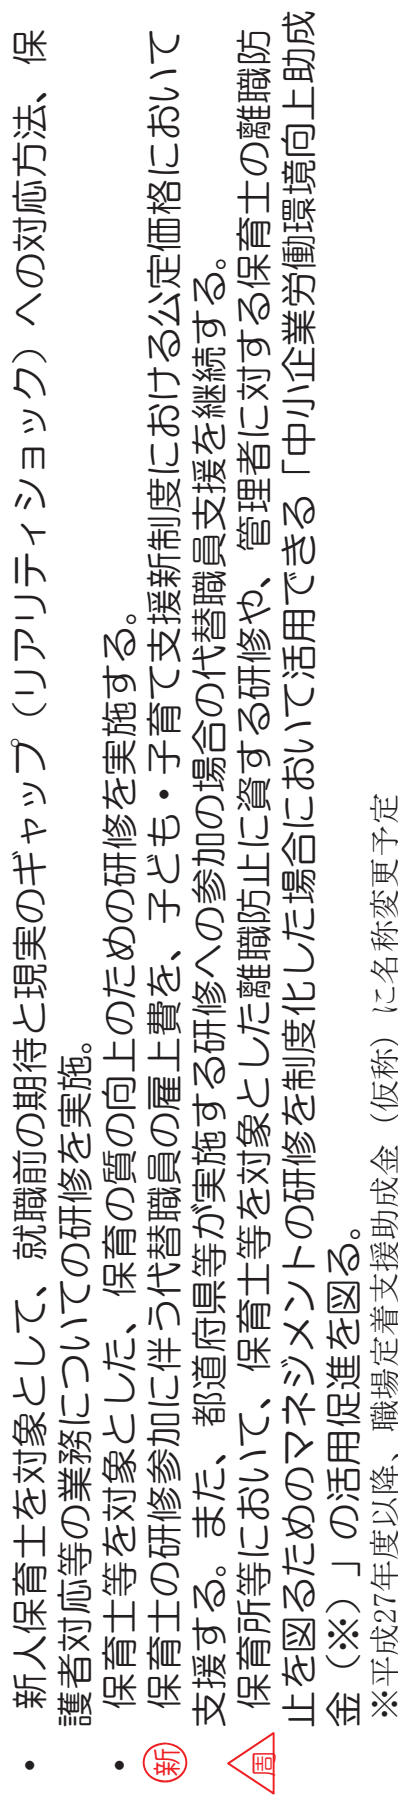 • 新人保育士を対象として、就職前の期待と現実のギャップ（リアリティショック）への対応方法、保
護者対応等の業務についての研修を実施。
• 保育士等を対象とした、保育の質の向上のための研修を実施する。
新 保育士の研修参加に伴う代替職員の雇上費を、子ども・子育て支援新制度における公定価格において
支援する。また、都道府県等が実施する研修への参加の場合の代替職員支援を継続する。
周 保育所等において、保育士等を対象とした離職防止に資する研修や、管理者に対する保育士の離職防
止を図るためのマネジメントの研修を制度化した場合において活用できる「中小企業労働環境向上助成
金（※）」の活用促進を図る。
※平成27年度以降、職場定着支援助成金（仮称）に名称変更予定